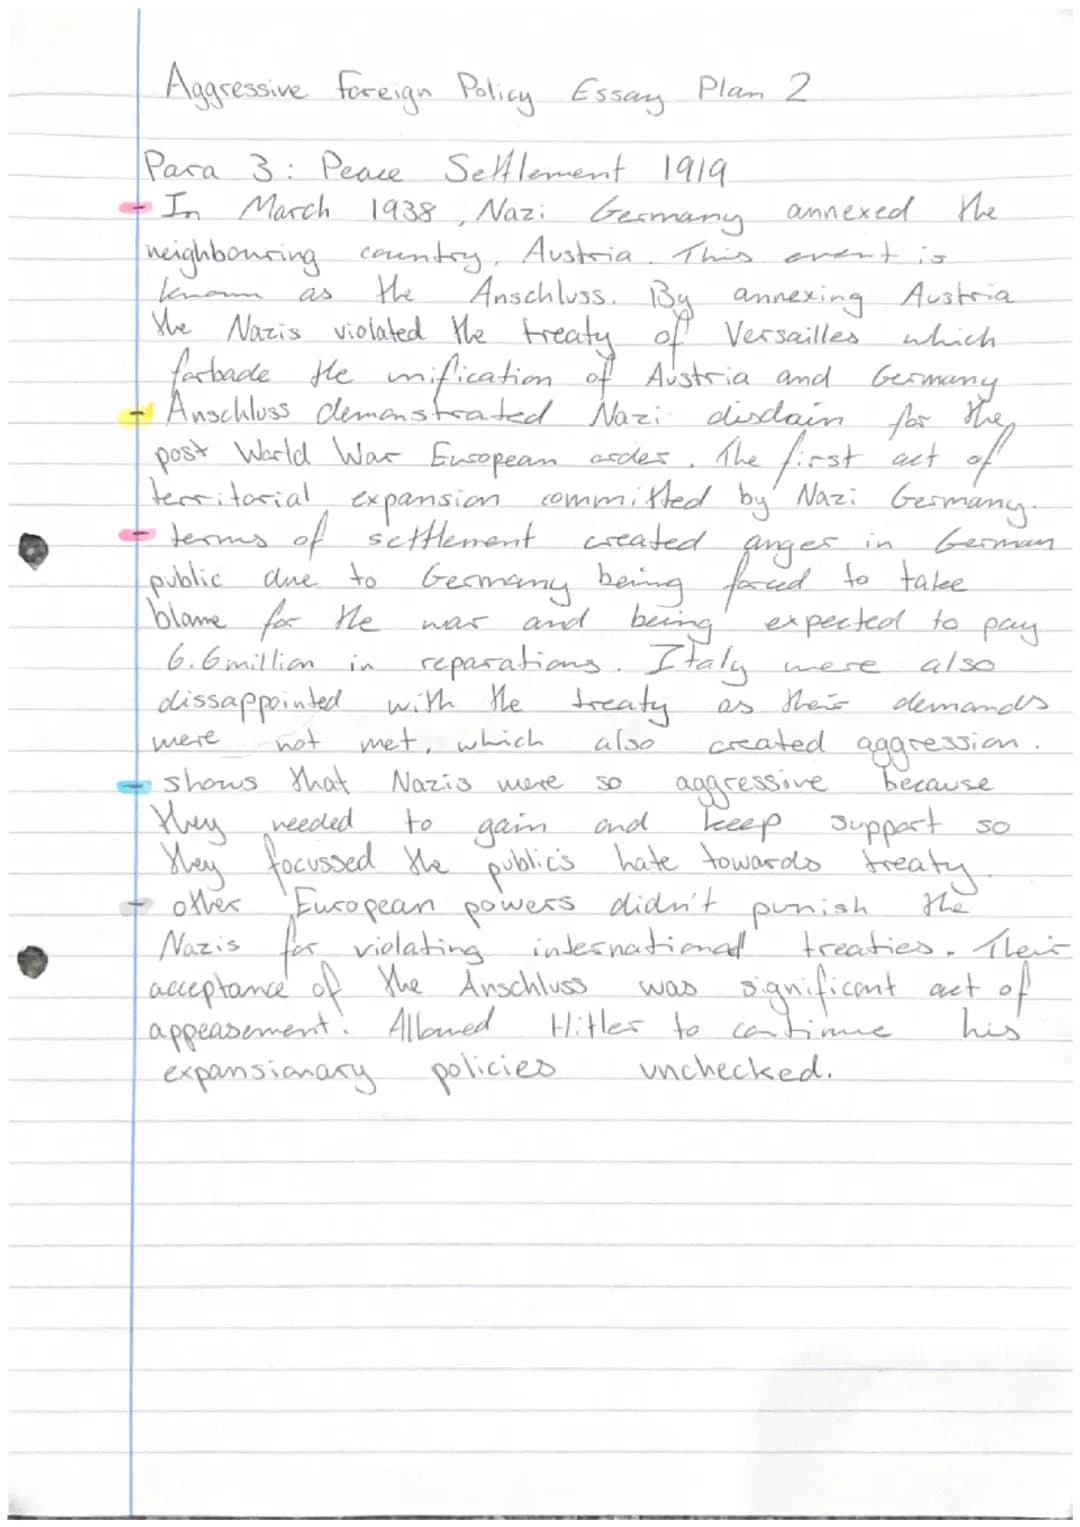 Aggressive Foreign Policy Essay Plan 2
Para 3: Peace Settlement 1919
- In March 1938, Nazi Germany annexed the
neighbouring country, Austria. This event is
known as the Anschluss. By annexing Austria
the Nazis violated the treaty of Versailles which
forbade the unification of Austria and Germany
- Anschluss demonstrated Nazi disdain for the
post World War European order. The first act of
territorial expansion committed by Nazi Germany.
- terms of settlement created anger in German
public due to Germany being forced to take
blame for the war and being expected to pay
6.6million in reparations. Italy were also
dissappointed with the treaty as their demands
were not met, which also created aggression.
- shows that Nazis were so aggressive because
they needed to gain and keep support so
they focussed the public's hate towards treaty.
- other European powers didn't punish the
Nazis for violating international treaties. Their
acceptance of the Anschluss was significant act of
appeasement. Allowed Hitler to continue his
expansionary policies unchecked.